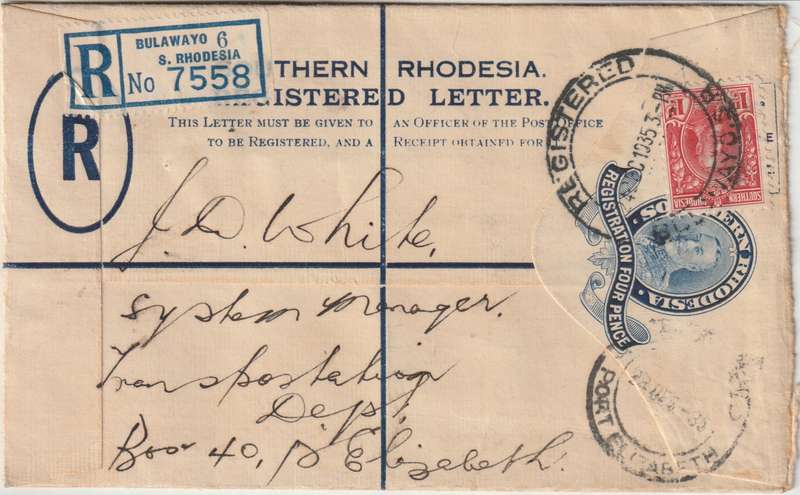 BULAWAYO 6
S. RHODESIA
R No 7558
THERN RHODESIA.
REGISTERED LETTER.
THIS LETTER MUST BE GIVEN TO AN OFFICER OF THE POST OFFICE
TO BE REGISTERED, AND A RECEIPT OBTAINED FOR
R
REGISTERED
BULAWAYO
1035 3-PM
1D 1D
SOUTHERN RHODESIA
E
RHODESIA
REGISTRATION FOUR PENCE
J. D. White,
System Manager.
Transportation
Dept,
Box 40, P Elizabeth.
PORT ELIZABETH